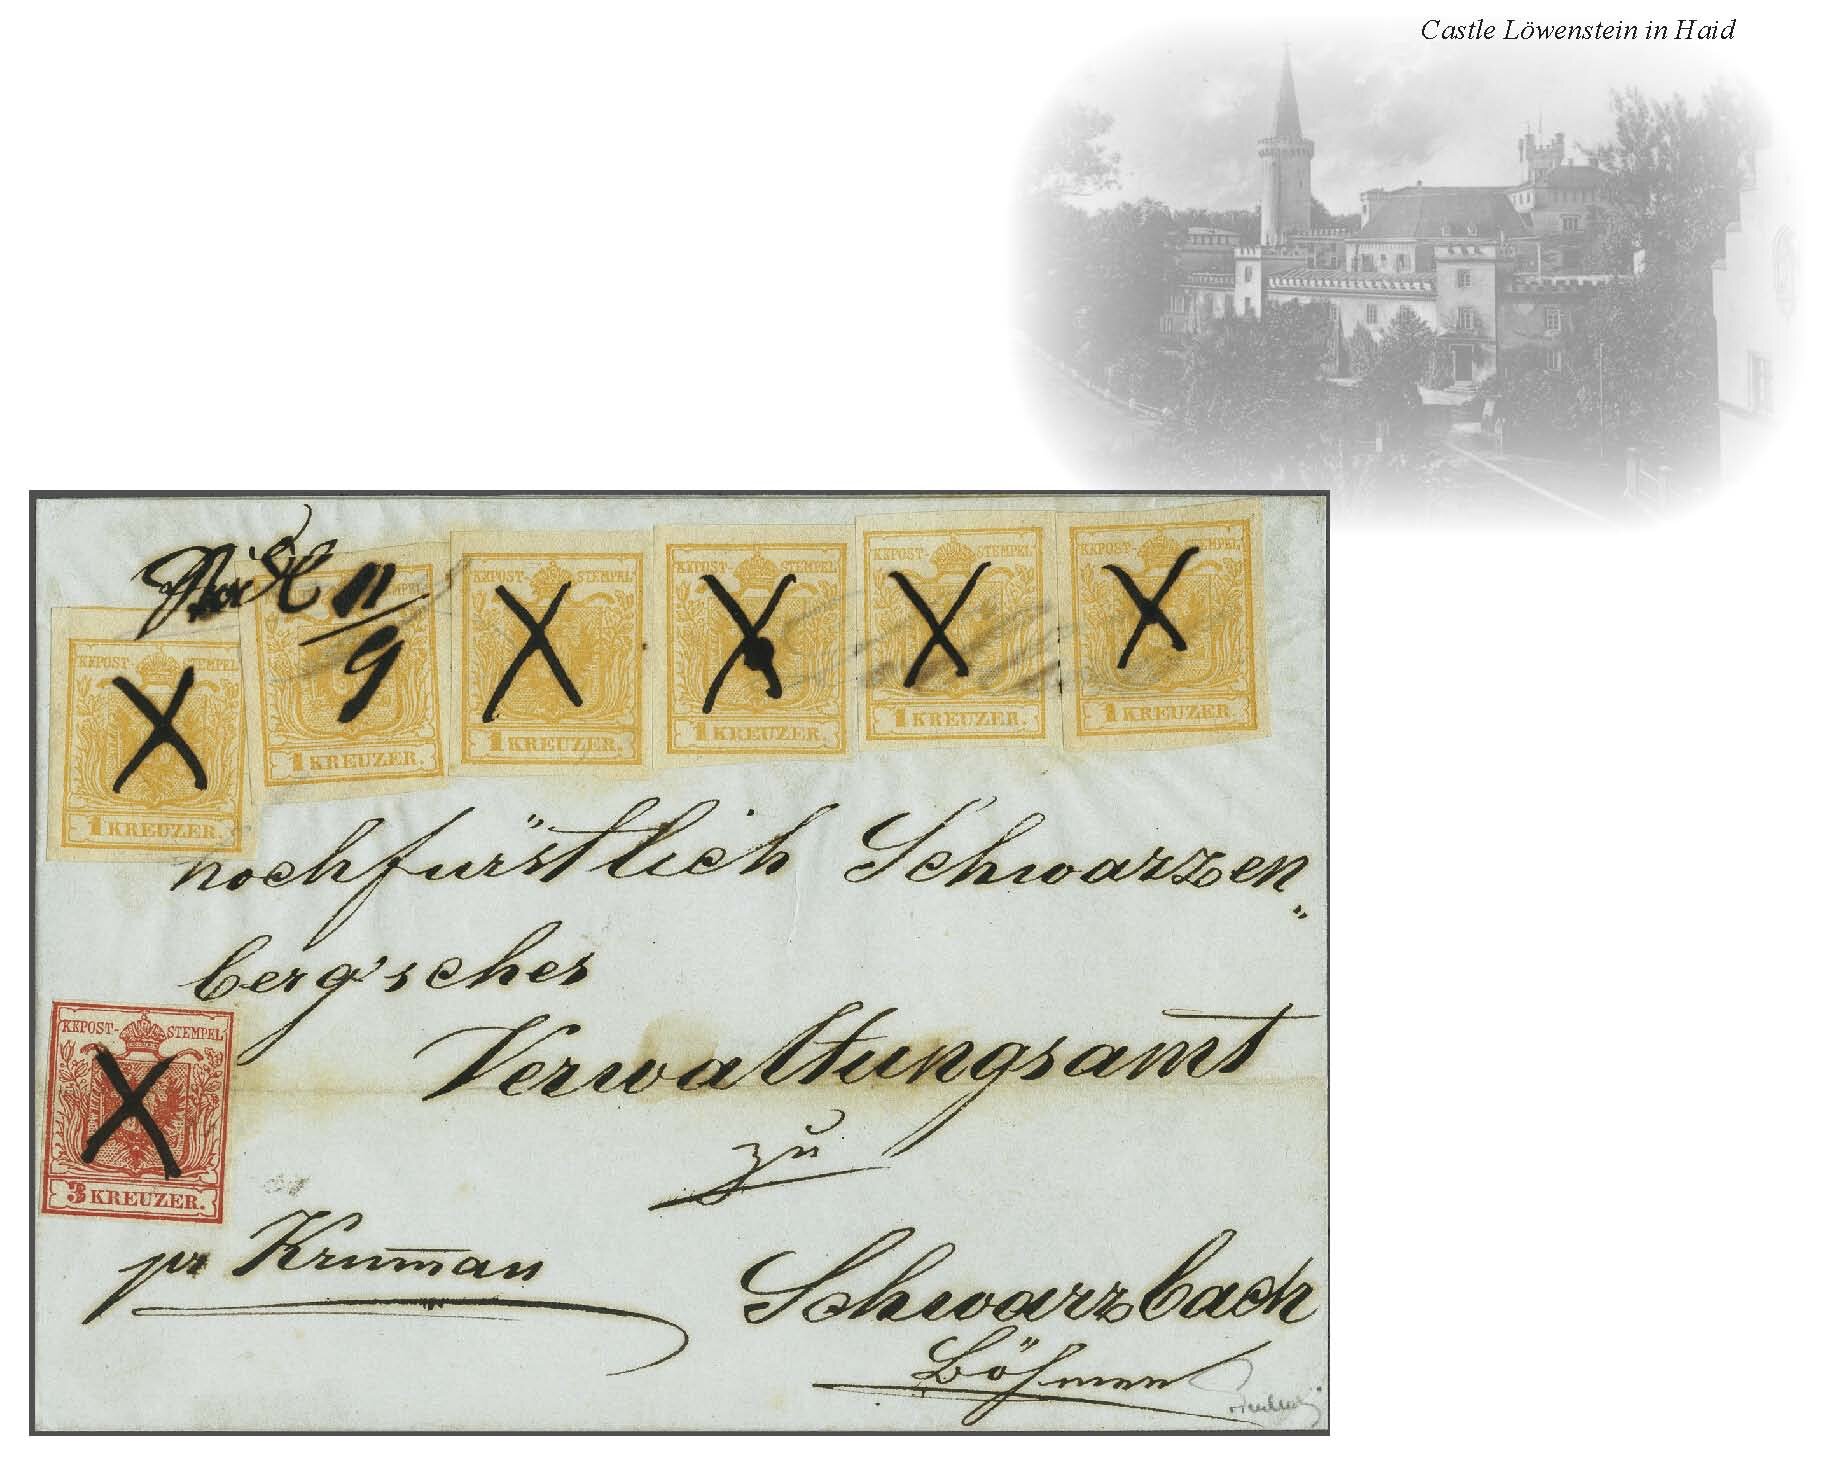 Castle Löwenstein in Haid
11/9
KKPOST-STEMPEL
1 KREUZER.
STEMPEL
1 KREUZER.
KKPOST-STEMPEL
1 KREUZER.
KKPOST-STEMPEL
1 KREUZER.
KKPOST-STEMPEL
1 KREUZER.
KKPOST-STEMPEL
1 KREUZER.
hochfürstlich Schwarzen„
berg'sches
Verwaltungsamt
zu
KKPOST-STEMPEL
3 KREUZER.
pr Krumau
Schwarzbach
Böhmen